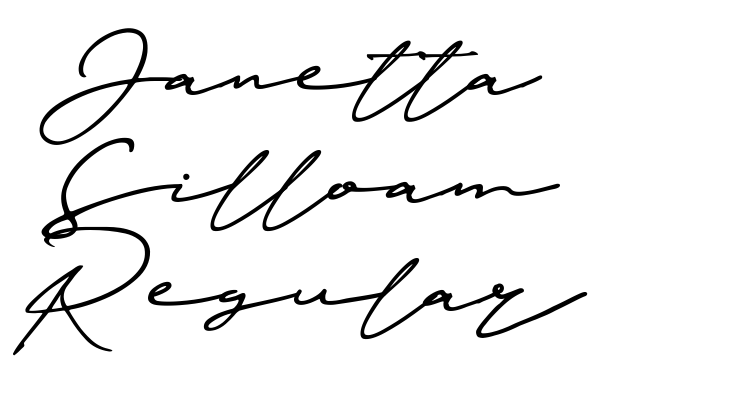 Janetta
Silloam
Regular